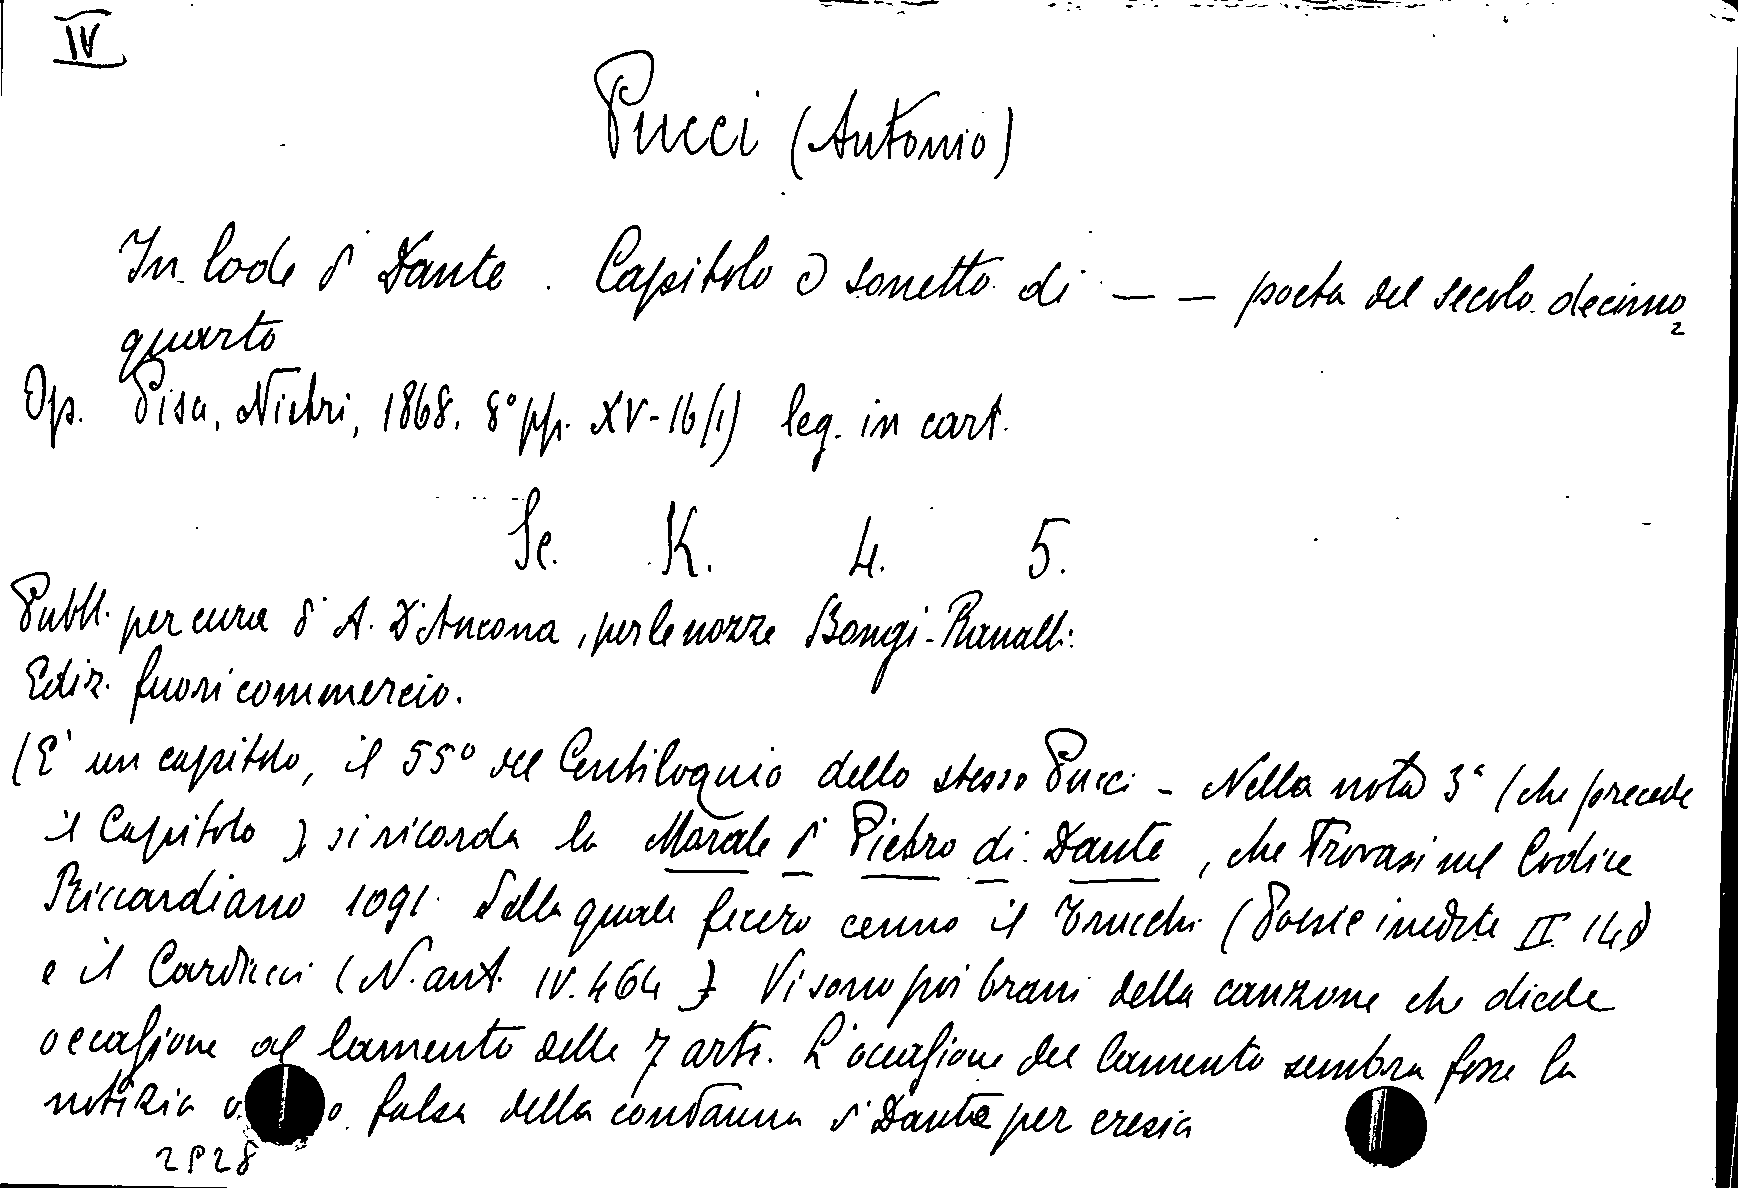 IV
Pucci (Antonio)
In lode di Dante. Capitolo e sonetto di — — poeta del secolo decimo
quarto
Op. Pisa, Nistri, 1868. 8° pp. XV-16 (1) leg. in cart.
Se. K. 4. 5.
Pubbl. per cura di A. D'Ancona, per le nozze Bongi-Ranalli.
Ediz. fuori commercio.
(E' un capitolo, il 55° del Centiloquio dello stesso Pucci - Nella nota 3ª (che precede
il Capitolo) si ricorda la Morale di Pietro di Dante, che trovasi nel Codice
Riccardiano 1091. Della quale fecero cenno il Trucchi (Poesie inedite II. 140)
e il Carducci (N. ant. IV. 464) Vi sono poi brani della canzone che diede
occasione al lamento delle 7 arti. L'occasione del lamento sembra fosse la
notizia falsa della condanna di Dante per eresia
2828